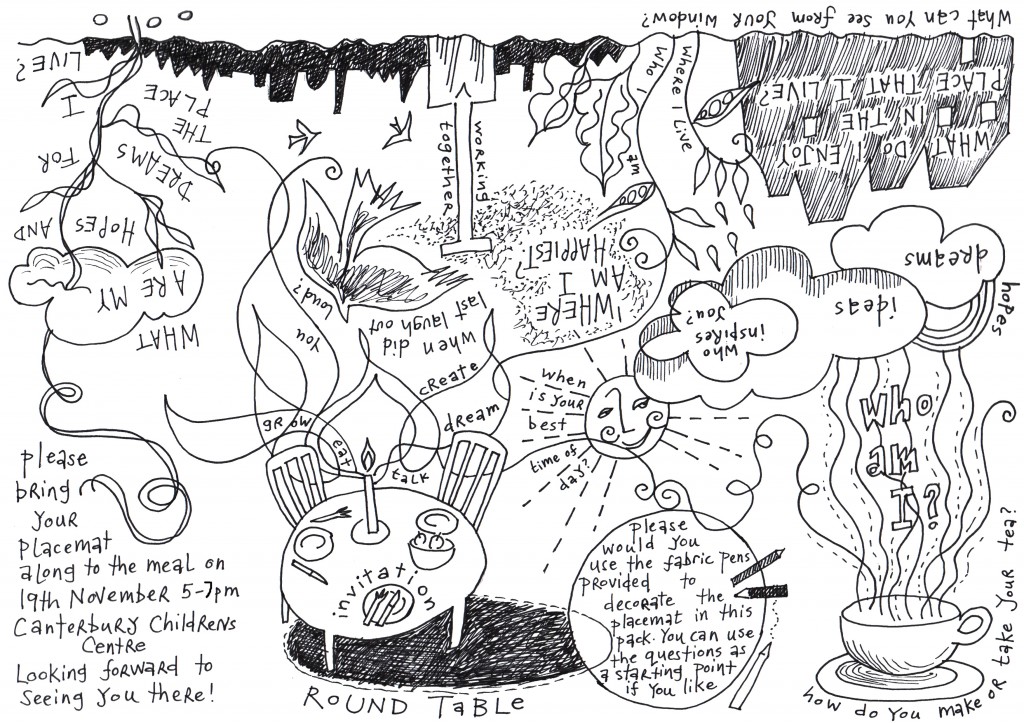 What can you see from your window?
WHAT
DO I ENJOY
IN THE
PLACE THAT I LIVE?
WHAT
ARE MY
HOPES AND
DREAMS FOR
THE
PLACE
I
LIVE?
working
together
Who I am
Where I Live
WHERE
AM I
HAPPIEST?
when did
you
last laugh out
Loud?
dreams
hopes
ideas
who
inspires
you?
when
is your
best
time of
day?
create
dream
grow
eat
talk
invitation
ROUND TABLE
WHO
am
I?
how do you make or take your tea?
please
bring
your
placemat
along to the meal on
19th November 5-7pm
Canterbury Childrens
Centre
Looking forward to
seeing you there!
please
would you
use the fabric pens
provided to
decorate the
placemat in this
pack. You can use
the questions as
a starting point
if you like